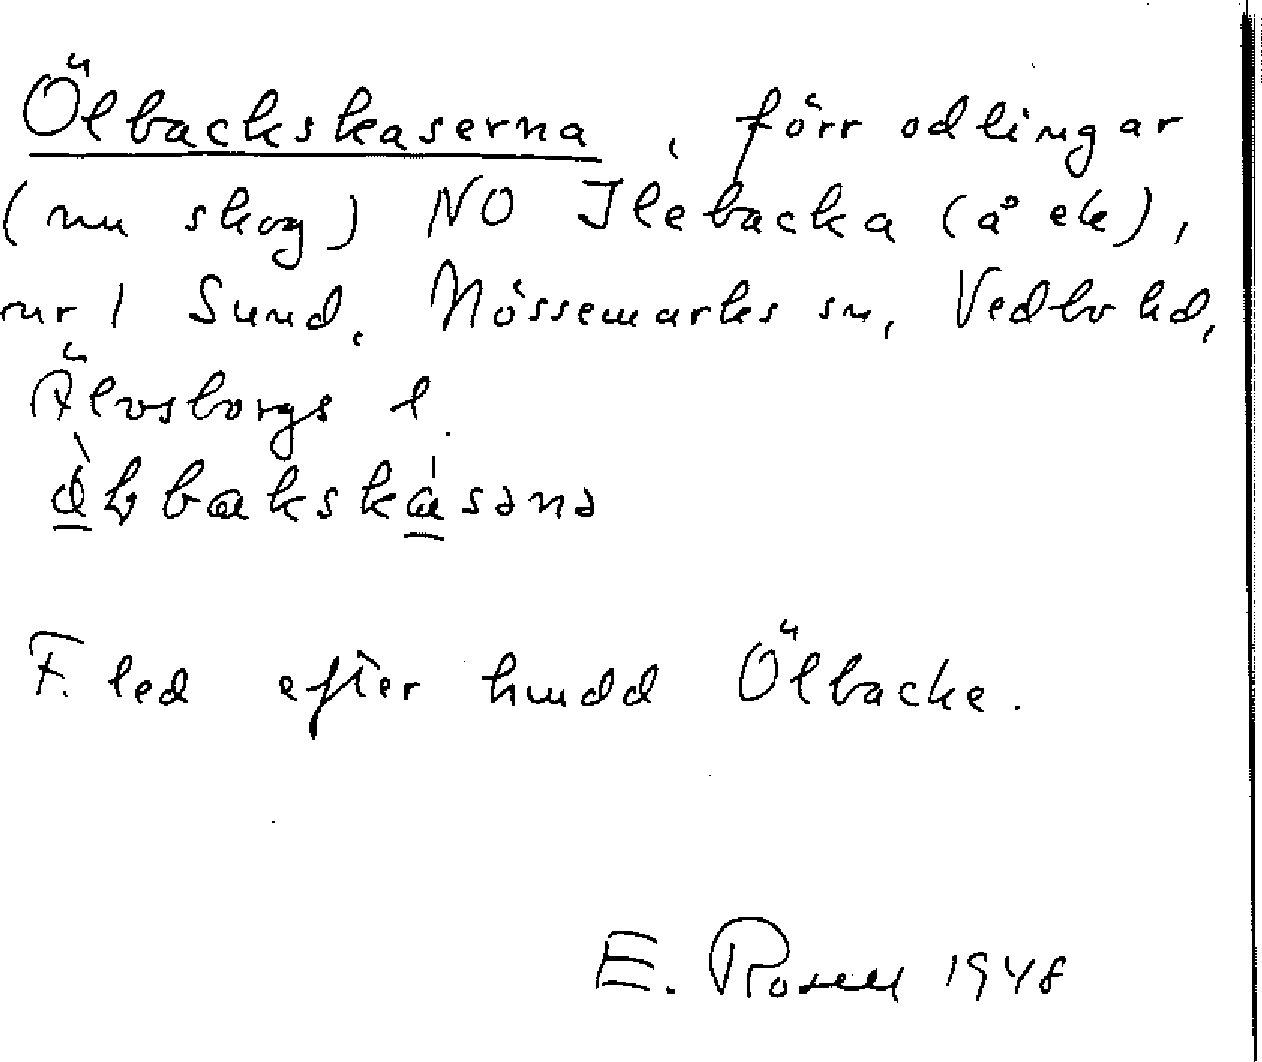 Ölbackskaserna, förr odlingar
(nu skog) NO Ilebacka (å ek),
nr 1 Sund, Nössemarks sn, Vedbo hd,
Älvsborgs l.
F. led efter hmdd Ölbacke.
E. Rosell 1948